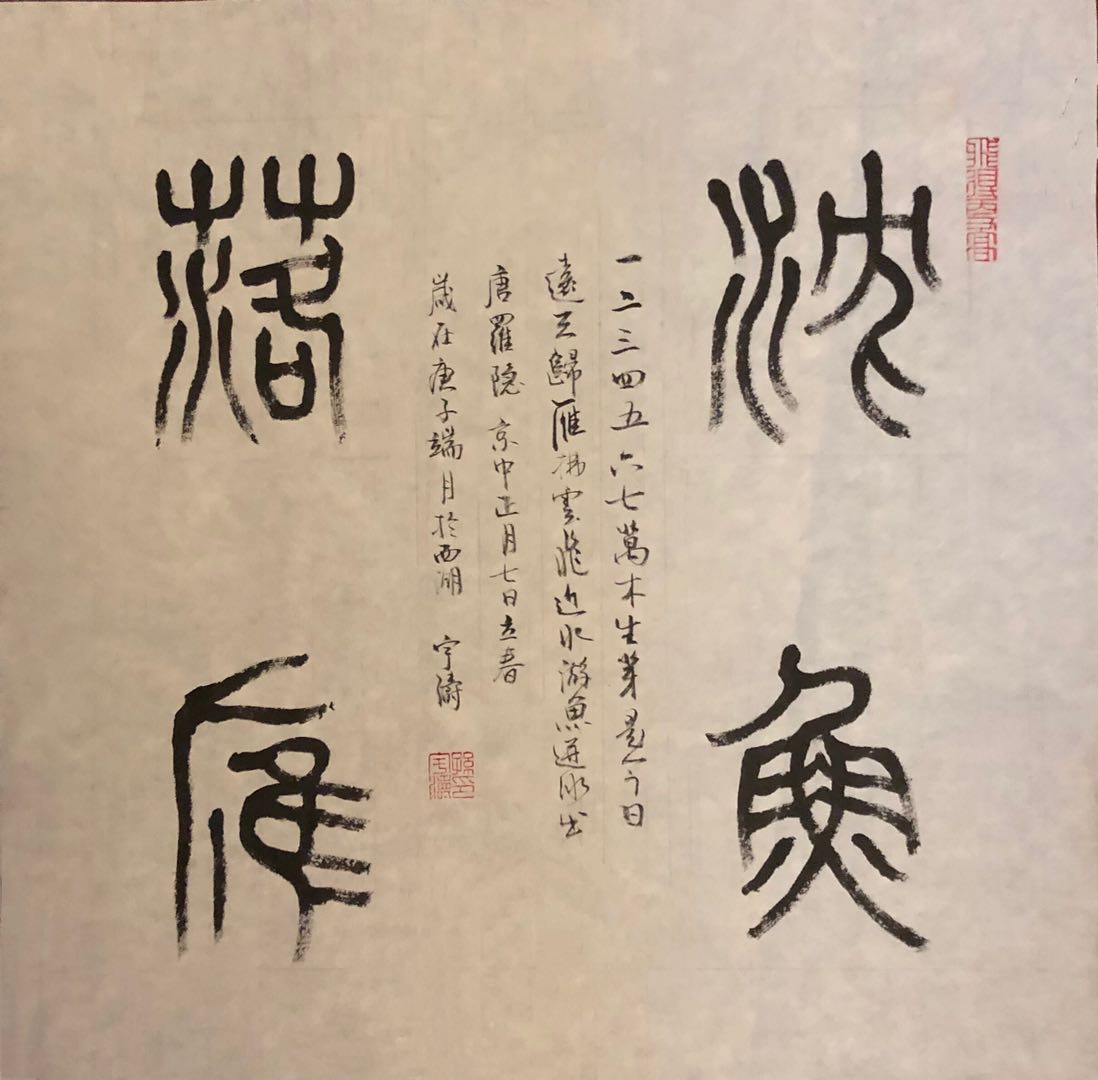 沈魚
一二三四五六七萬木生芽是今日
遠天歸雁拂雲飛近水游魚迸冰出
唐羅隐 京中正月七日立春
歲在庚子端月於西湖 宇濤
孫印
宇濤
落雁